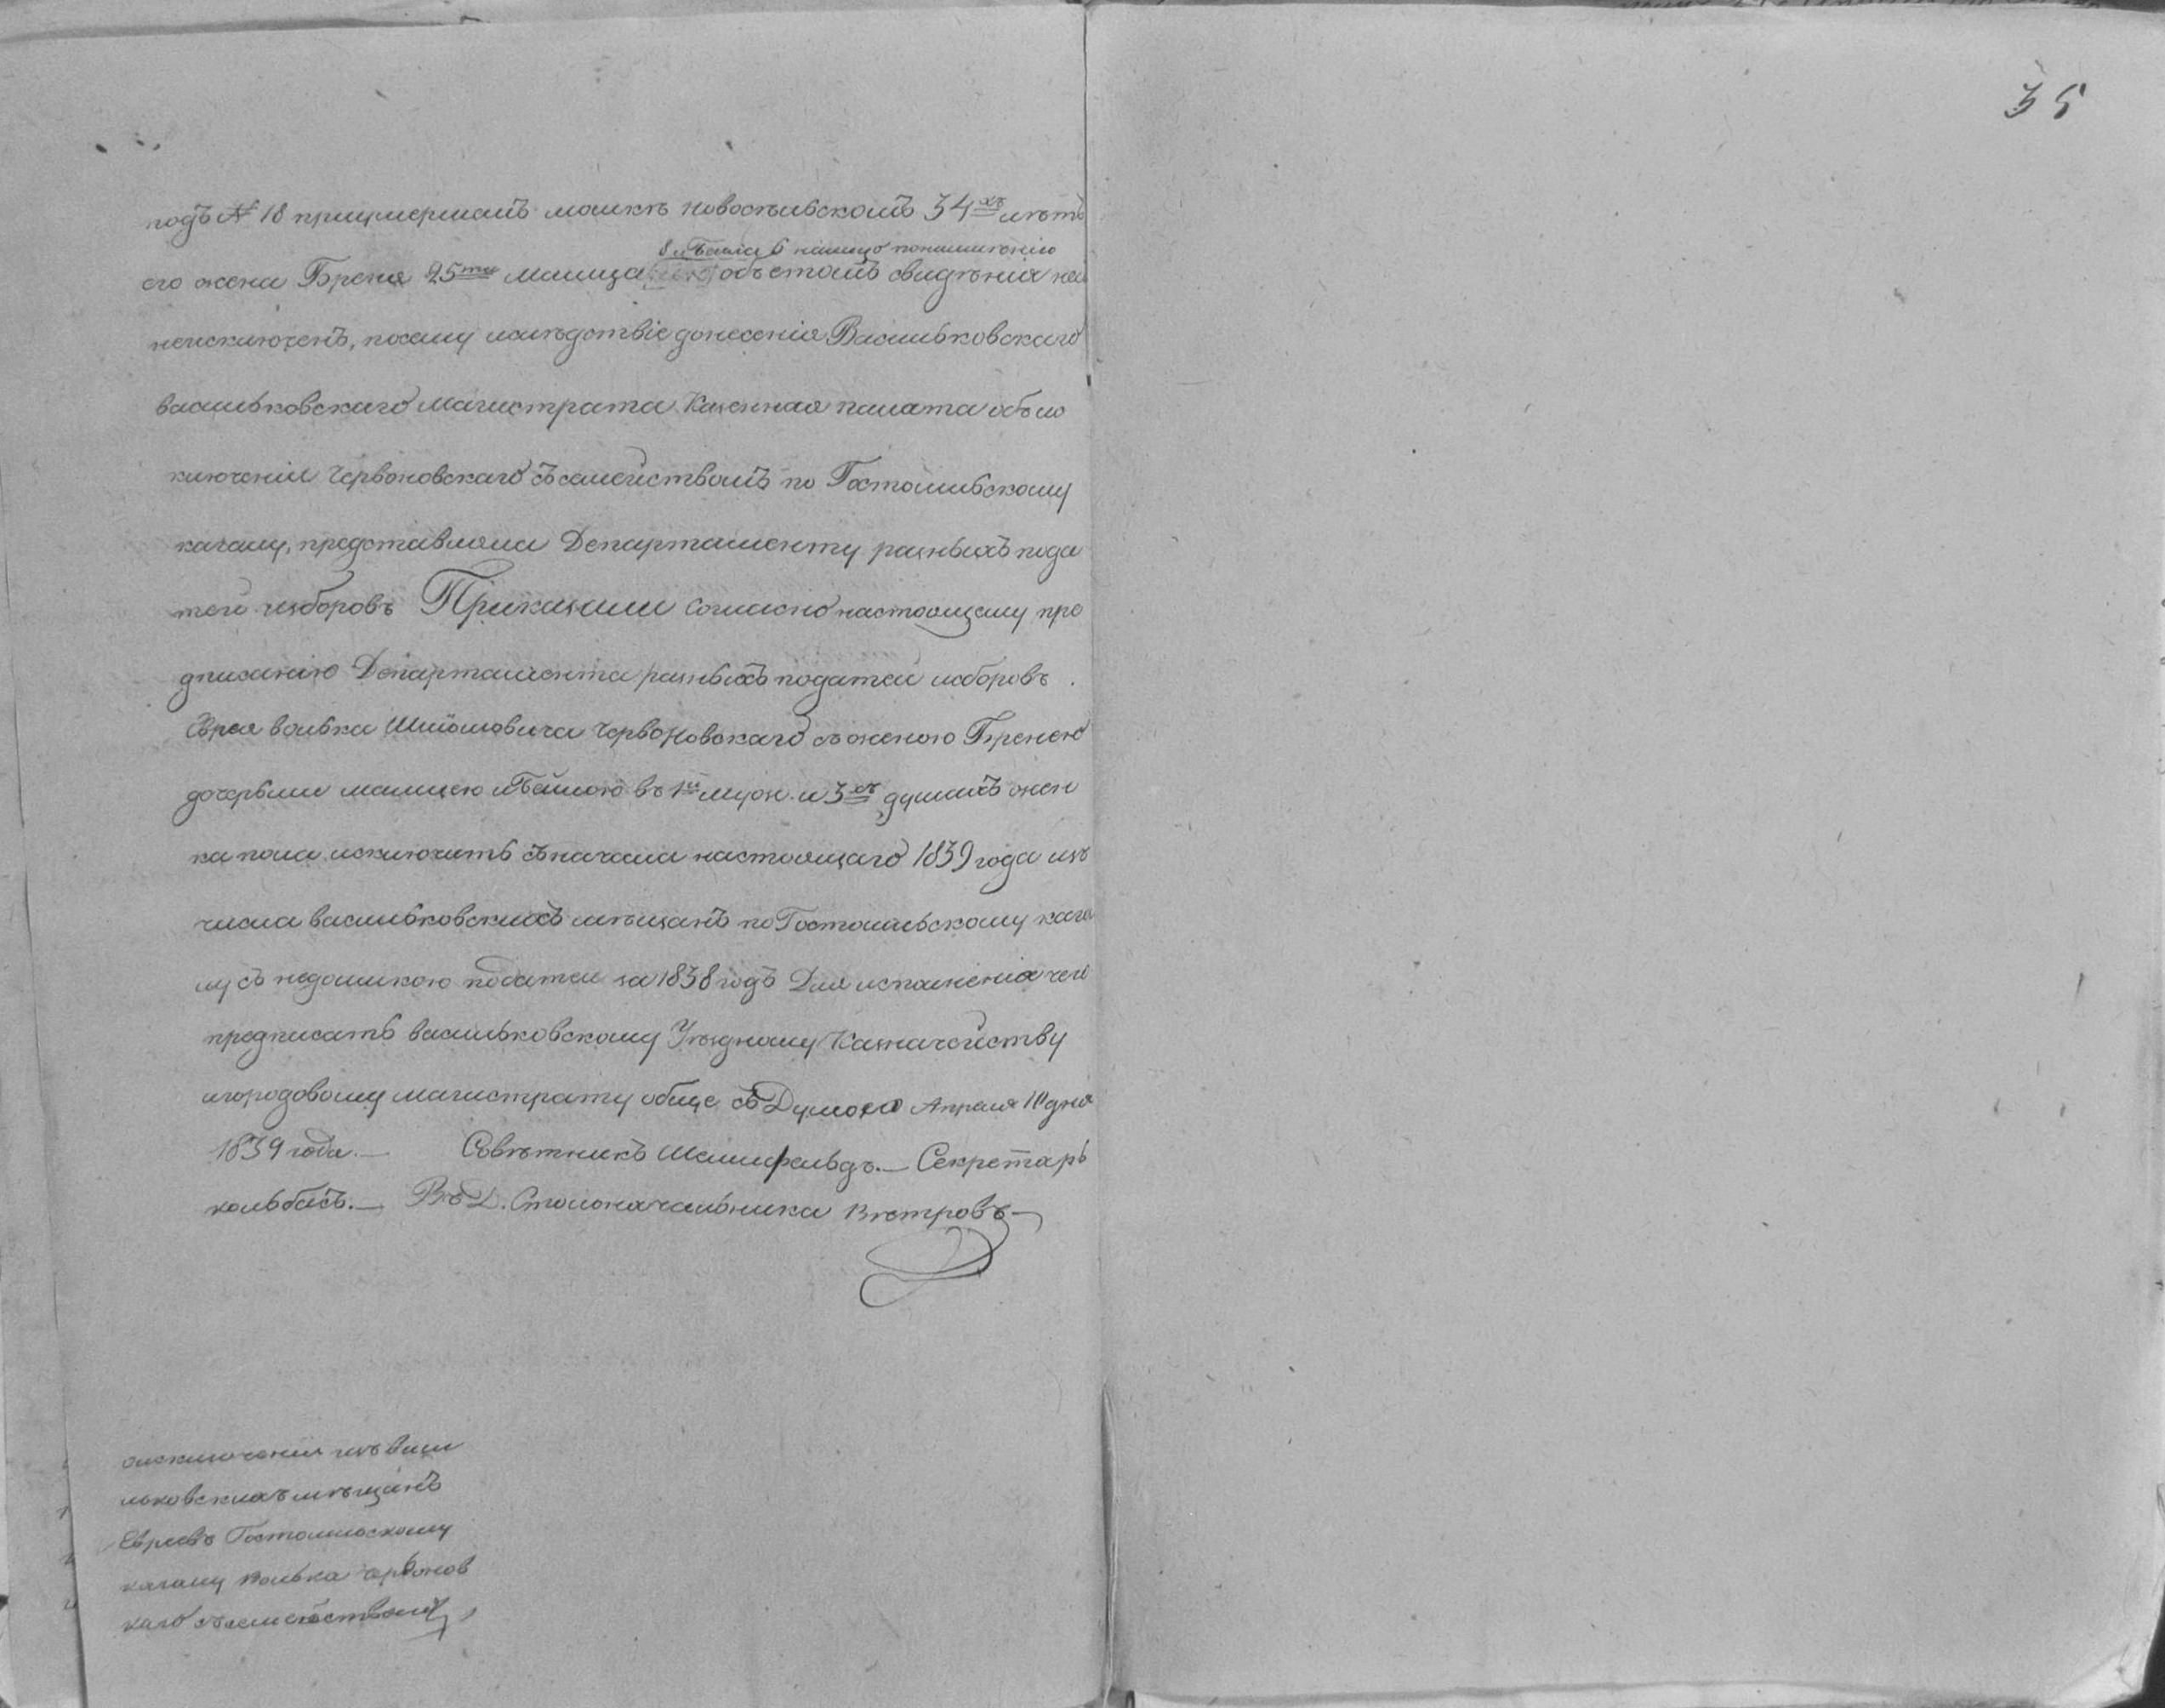 35
подъ № 18 при умершемъ Новосельскомъ 34хъ летъ
8 и Бейла 6 
его жена Бреня 25ти Малица объ етомъ сведения
неисключенъ, посему донесения Васильковскаго
васильковскаго Магистрата Казенная палата объ ис
ключении Червоновскаго съ семействомъ по Гостомельскому
кагалу, представляла Департаменту разныхъ пода
тей и зборовъ Приказали Согласно настоящему пре
дписанію Департамента разныхъ податей и зборовъ.
Еврея волька Шліомовича Червоновскаго съ женою Бренею
дочерьми малицею и Бейлою въ 1й муж. и 3хъ душахъ жен
ка пола исключить съ начала настоящаго 1839 года изъ
числа васильковскихъ мѣщанъ по Гостомельскому кага
лу съ недоимкою податей за 1838 годъ Для исполненія чего
предписать васильковскому Уездному Казначейству
и городовому магистрату обще съ Думою Апреля 10 дня
1839 года.— Совѣтникъ — Секретарь
кольбасъ.— Въ Д. Столоначальника Вѣтровъ
о исключении изъ васи
льковскихъ мѣщанъ
Гостомельскому
кагалу волька червонов
каго съ семействомъ